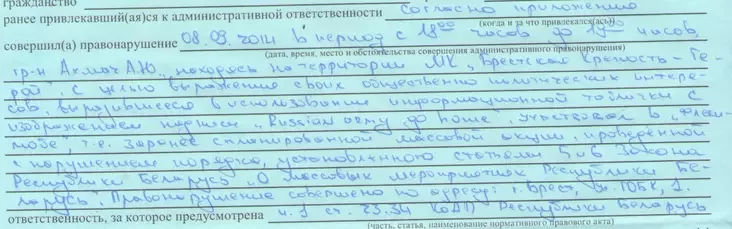 гражданство
ранее привлекавший(ая)ся к административной ответственности согласно приложению
(когда и за что привлекался(ась))
совершил(а) правонарушение 08.03.2014 в период с 18⁰⁰ часов до 19⁰⁰ часов,
(дата, время, место и обстоятельства совершения административного правонарушения)
гр-н А.Ю., находясь на территории МК "Брестская Крепость-Ге-
рой", с целью выражение своих общественно политических интере-
сов, выразившееся в использование информационной таблички с
изображением надписи "Russian army go home", участвовал в "флеш-
мобе", т.е. заранее спланированной массовой акции, проведённой
с нарушением порядка, установленного статьями 5 и 6 Закона
Республики Беларусь "О массовых мероприятиях Республики Бе-
ларусь". Правонарушение совершено по адресу: г. Брест, ул. ГОБК, 1.
ответственность, за которое предусмотрена ч. 1 ст. 23.34 КоАП Республики Беларусь
(часть, статья, наименование нормативного правового акта)